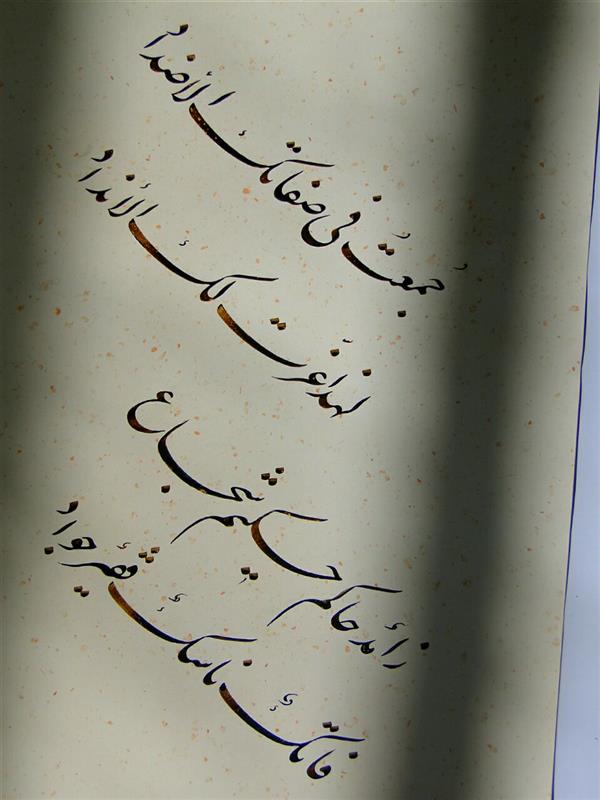 جُمِعَتْ في صفاتك الأضداد
لهذا عزّت لك الأنداد
زاهد حاكم حليم شجاع
فاتك ناسك فقير جواد